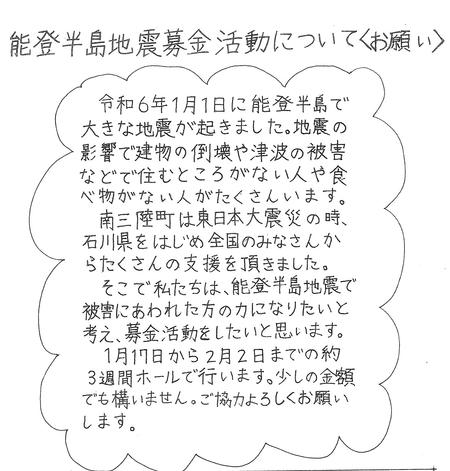 能登半島地震募金活動について〈お願い〉
令和6年1月1日に能登半島で
大きな地震が起きました。地震の
影響で建物の倒壊や津波の被害
などで住むところがない人や食
べ物がない人がたくさんいます。
南三陸町は東日本大震災の時、
石川県をはじめ全国のみなさんか
らたくさんの支援を頂きました。
そこで私たちは、能登半島地震で
被害にあわれた方の力になりたいと
考え、募金活動をしたいと思います。
1月17日から2月2日までの約
3週間ホールで行います。少しの金額
でも構いません。ご協力よろしくお願い
します。